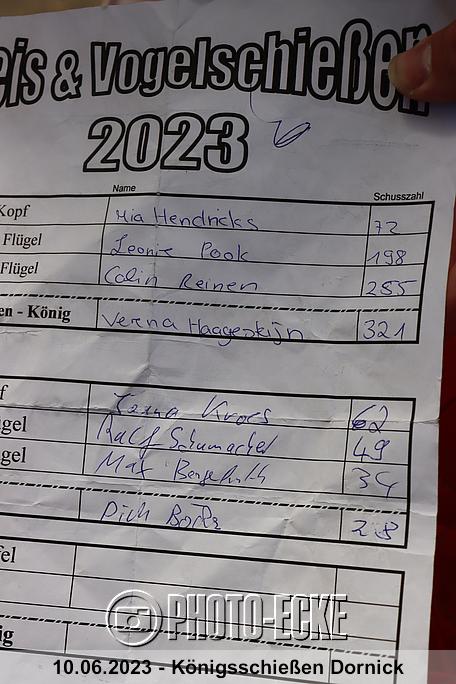 eis & Vogelschießen
2023
Name Schusszahl
Kopf Mia Hendricks 72
Flügel Leonie Pook 198
Flügel Colin Reinen 285
en - König Verena Haageskijn 321
f Kroes 62
gel Ralf Schumacher 49
gel Max 34
Dick 28
fel
ig
PHOTO-ECKE
10.06.2023 - Königsschießen Dornick